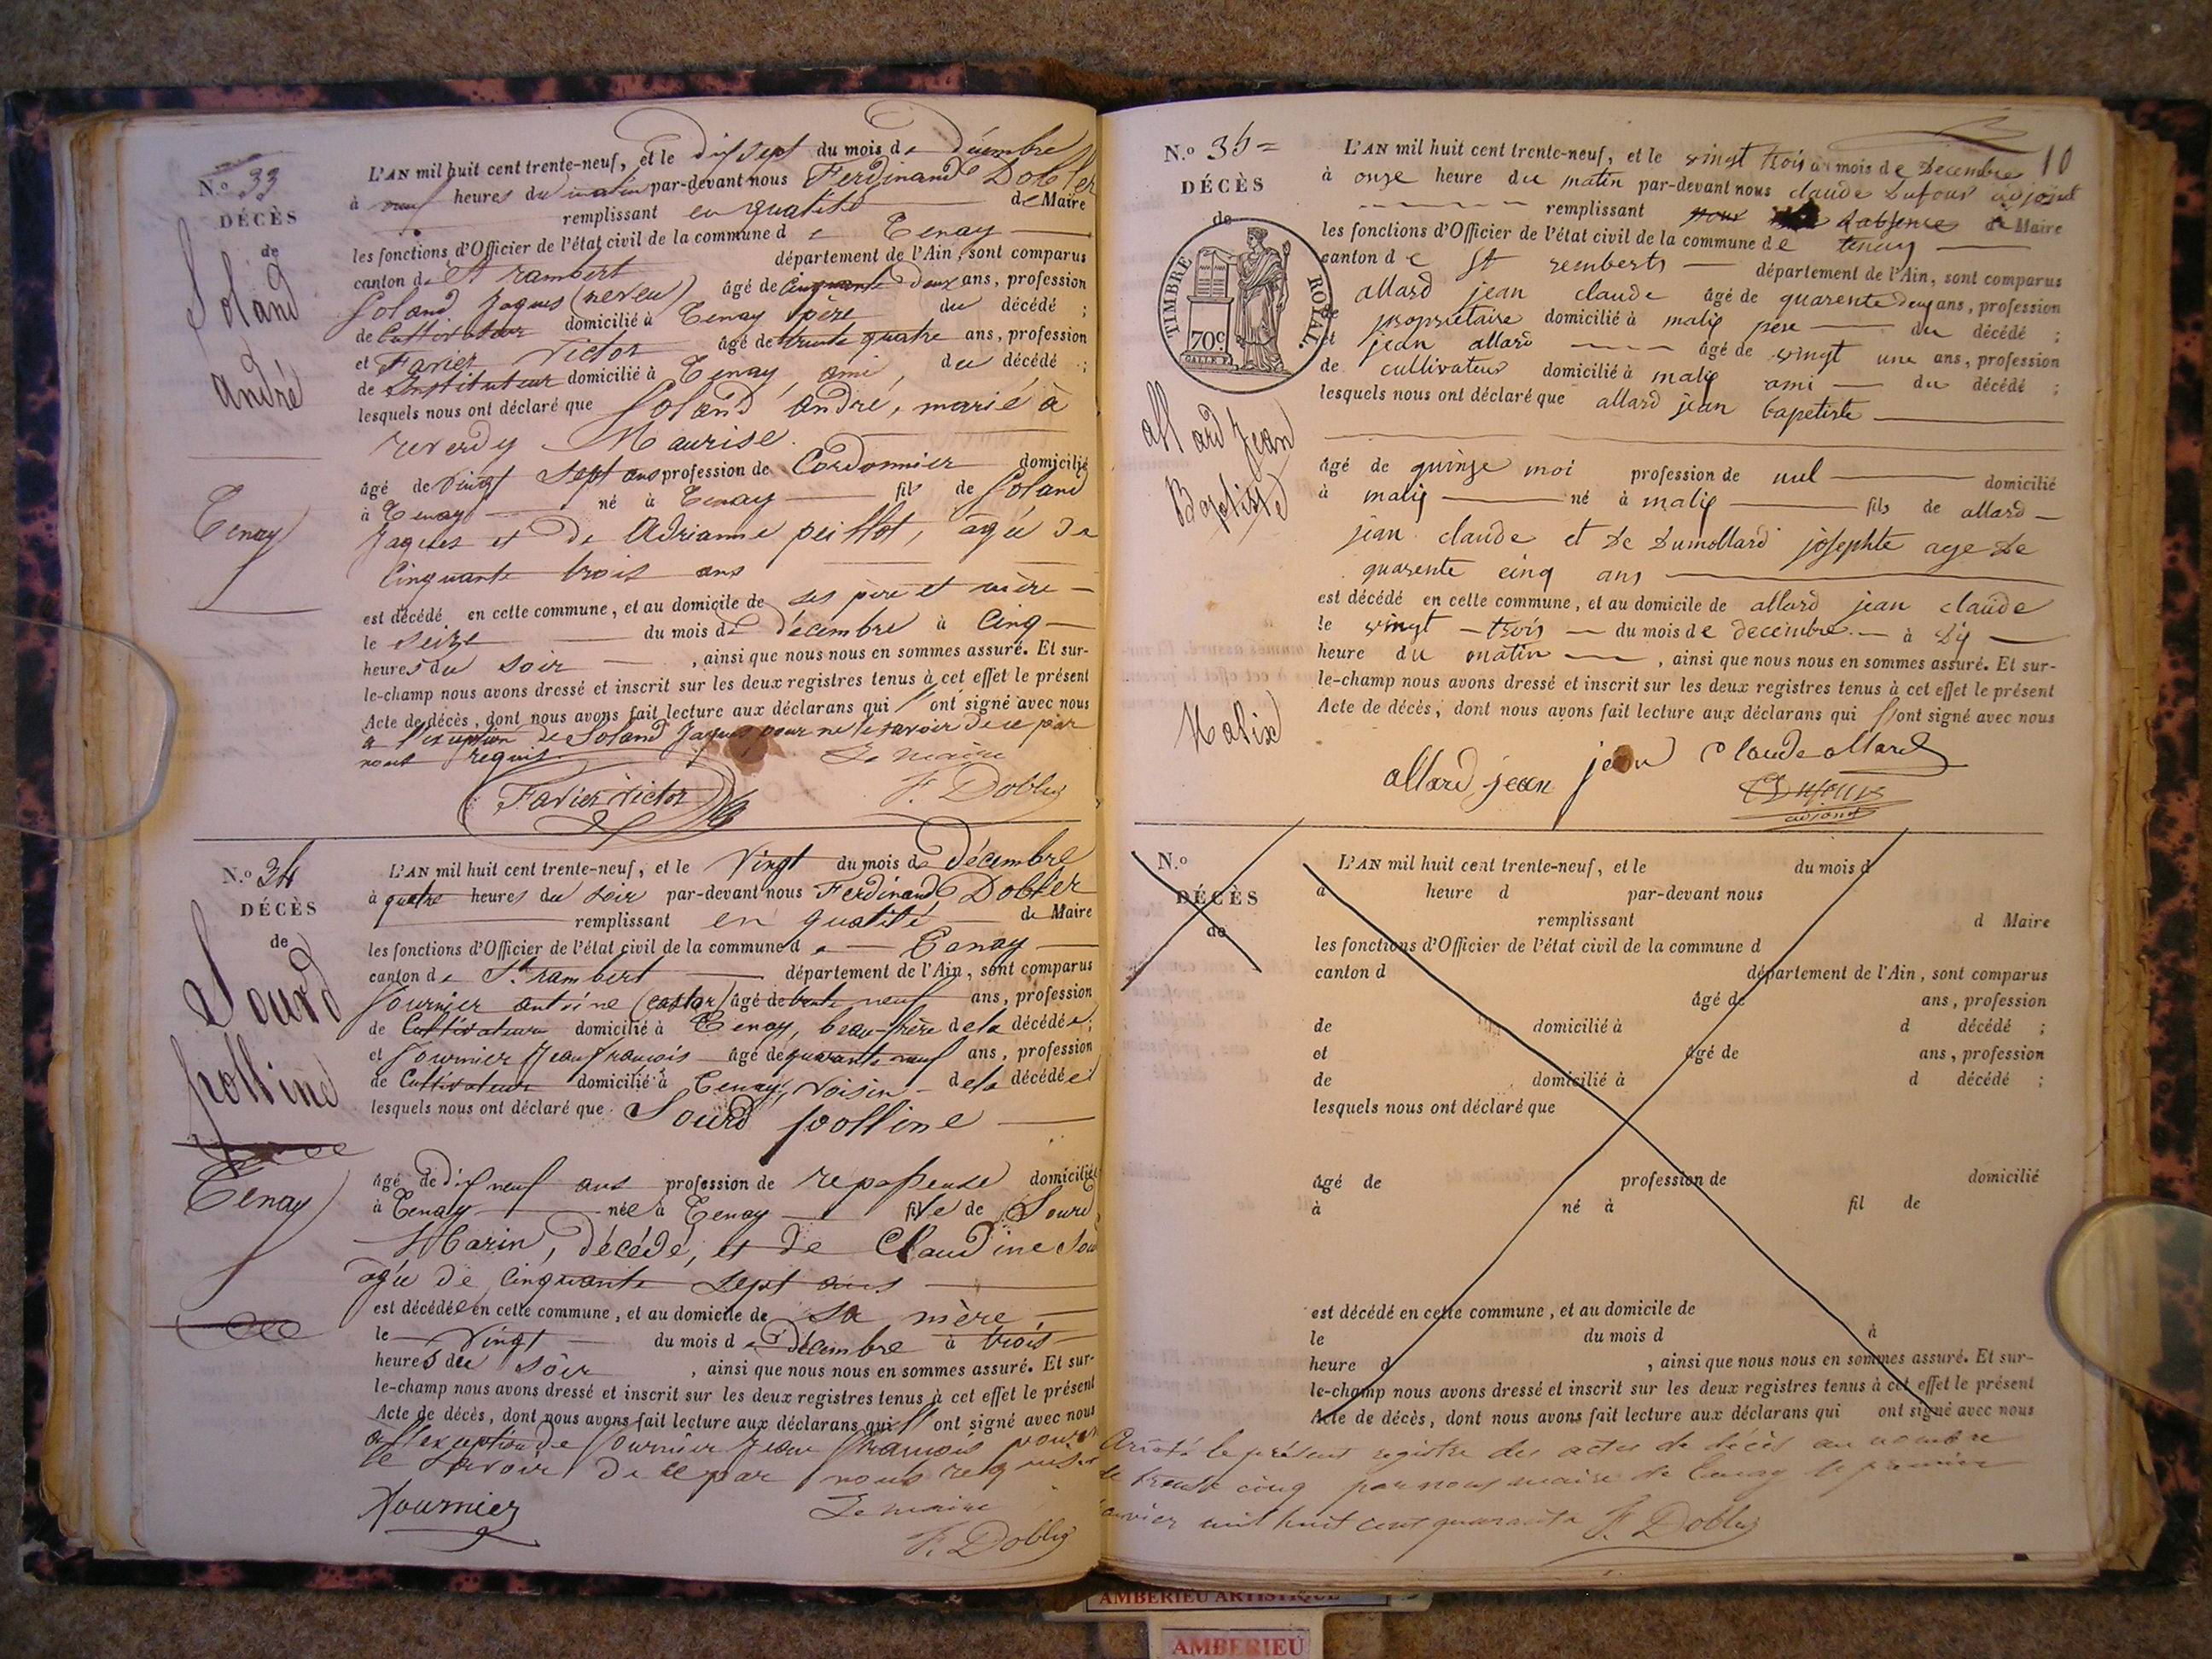 N.º 33
DÉCÈS
de
Soland
André
Tenay
L'AN mil huit cent trente-neuf, et le dix sept du mois de Décembre
à neuf heures du matin par-devant nous Ferdinand Dobler
remplissant en qualité de Maire
les fonctions d'Officier de l'état civil de la commune de Tenay
canton de St rambert département de l'Ain, sont comparus
Soland Jaques (neveu) âgé de Cinquante deux ans, profession
de Cultivateur domicilié à Tenay père du décédé ;
et Favier Victor âgé de trente quatre ans, profession
de Instituteur domicilié à Tenay ami, du décédé ;
lesquels nous ont déclaré que Soland André, marié à
reverdy Maurise.
âgé de vingt sept ans profession de Cordonnier domicilié
à Tenay né à Tenay fils de Soland
Jaques et de Adrianne peillot, âgée de
Cinquante trois ans
est décédé en cette commune, et au domicile de ses père et mère
le seize du mois de décembre à Cinq
heures du soir , ainsi que nous nous en sommes assuré. Et sur-
le-champ nous avons dressé et inscrit sur les deux registres tenus à cet effet le présent
Acte de décès, dont nous avons fait lecture aux déclarans qui l' ont signé avec nous
à l'exception de Soland Jaques pour ne le savoir de ce par
nous requis.
Le maire
Favier Victor F. Dobler
N.º 34
DÉCÈS
de
Sourd
polline
Tenay
L'AN mil huit cent trente-neuf, et le Vingt du mois de Décembre
à quatre heures du soir par-devant nous Ferdinand Dobler
remplissant en qualité de Maire
les fonctions d'Officier de l'état civil de la commune de Tenay
canton de St. rambert département de l'Ain, sont comparus
fournier antoine (castor) âgé de trente neuf ans, profession
de Cultivateur domicilié à Tenay, beau-frère de la décédée ;
et fournier Jean françois âgé de quarante neuf ans, profession
de Cultivateur domicilié à Tenay, voisin de la décédée
lesquels nous ont déclaré que Sourd polline
âgé de dix neuf ans profession de repasseuse domiciliée
à Tenay née à Tenay fille de Sourd
Marin, décédé, et de Claudine
âgée de Cinquante sept ans
est décédée en cette commune, et au domicile de sa mère
le Vingt du mois de Décembre à trois
heures du soir , ainsi que nous nous en sommes assuré. Et sur-
le-champ nous avons dressé et inscrit sur les deux registres tenus à cet effet le présent
Acte de décès, dont nous avons fait lecture aux déclarans qui l' ont signé avec nous
à l'exception de fournier Jean françois pour
le savoir de ce par nous requis.
Fournier Le maire
F. Dobler
10
N.º 35
DÉCÈS
de
TIMBRE ROYAL.
70c
allard Jean
Baptiste
Malix
L'AN mil huit cent trente-neuf, et le vingt trois du mois de Decembre
à onze heure du matin par-devant nous claude Dufour adjoint
remplissant pour d'absence de Maire
les fonctions d'Officier de l'état civil de la commune de tenay
canton de St remberts département de l'Ain, sont comparus
allard jean claude âgé de quarente deux ans, profession
propriétaire domicilié à malix père du décédé ;
et jean allard âgé de vingt une ans, profession
de cultivateur domicilié à malix ami du décédé ;
lesquels nous ont déclaré que allard jean bapetiste
âgé de quinze moi profession de nul domicilié
à malix né à malix fils de allard
jean claude et de Dumollard josephte age de
quarente cinq ans
est décédé en cette commune, et au domicile de allard jean claude
le vingt trois du mois de decembre à dix
heure du matin , ainsi que nous nous en sommes assuré. Et sur-
le-champ nous avons dressé et inscrit sur les deux registres tenus à cet effet le présent
Acte de décès, dont nous avons fait lecture aux déclarans qui l'ont signé avec nous
allard jean jean claude allard
Dufour
adjoint
N.º
DÉCÈS
de
L'AN mil huit cent trente-neuf, et le du mois d
à heure d par-devant nous
remplissant d Maire
les fonctions d'Officier de l'état civil de la commune d
canton d département de l'Ain, sont comparus
âgé de ans, profession
de domicilié à d décédé ;
et âgé de ans, profession
de domicilié à d décédé ;
lesquels nous ont déclaré que
âgé de profession de domicilié
à né à fil de
est décédé en cette commune, et au domicile de
le du mois d à
heure d , ainsi que nous nous en sommes assuré. Et sur-
le-champ nous avons dressé et inscrit sur les deux registres tenus à cet effet le présent
Acte de décès, dont nous avons fait lecture aux déclarans qui ont signé avec nous
Arrêté le présent registre des actes de décès au nombre
de trente cinq par nous maire de Tenay le premier
janvier mil huit cent quarante F. Dobler
AMBERIEU ARTISTIQUE
AMBERIEU